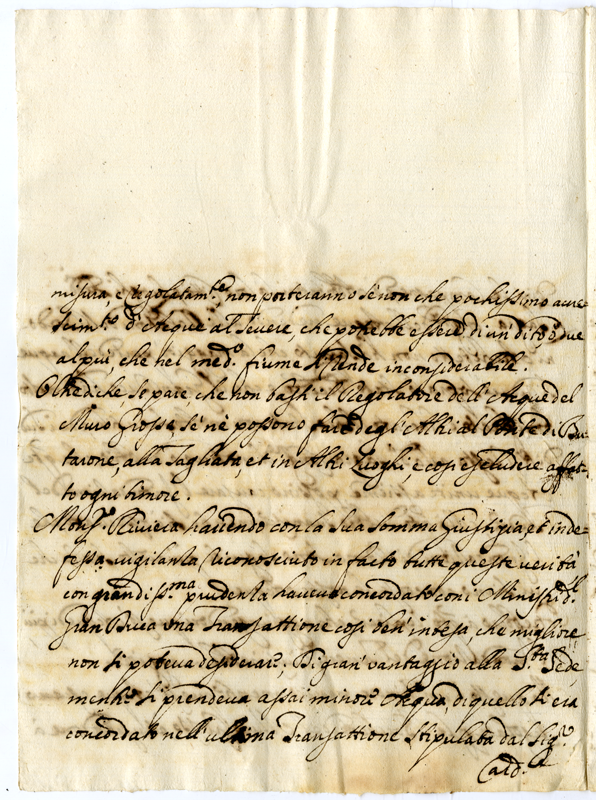 misura, e regolatam.te, non porteranno se non che pochissimo accre=
scim.to d'Acque al Tevere, che potrebbe essere di un dito, ò due
al più, che nel med.o fiume si rende inconsiderabile.
Oltre di che, se pare, che non basti il Regolatore dell'Acque del
Muro Grosso, se nè possono fare degl'Altri al Ponte di Bu=
tarone, alla Tagliata, et in Altri Luoghi, e così escludere affat=
to ogni timore.
Mons.r Riviera havendo con la sua somma Giustizia, et inde=
fessa vigilanza riconosciuto in facto tutte queste verità
con grandiss.ma prudenza haveva concordato con i Ministri d.l
Gran Duca una Transattione così ben' intesa, che migliore
non si poteva desiderare; Di gran' vantaggio alla S.ta Sede
mentre si prendeva assai minore Acqua, di quello si era
concordato nell'ultima Transattione Stipulata dal Sig.r
Card.l